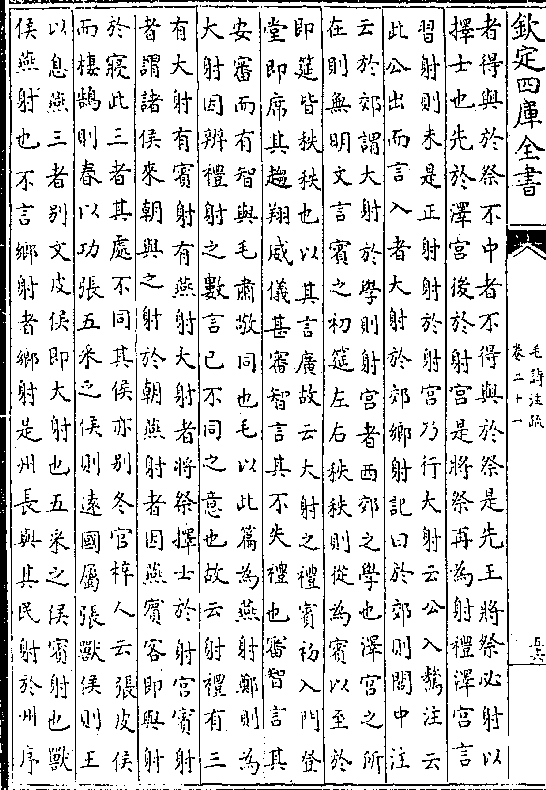 欽定四庫全書
毛詩注疏
卷二十一
者得與於祭不中者不得與於祭是先王將祭必射以
擇士也先於澤宮後於射宮是將祭再為射禮澤宮言
習射則未是正射射於射宮乃行大射云公入驁注云
此公出而言入者大射於郊鄉射記曰於郊則閭中注
云於郊謂大射於學則射宮者西郊之學也澤宮之所
在則無明文言賓之初筵左右秩秩則從為賓以至於
即筵皆秩秩也以其言廣故云大射之禮賓初入門登
堂即席其趨翔威儀甚審智言其不失禮也審智言其
安審而有智與毛肅敬同也毛以此篇為燕射鄭則為
大射因辨禮射之數言已不同之意也故云射禮有三
有大射有賓射有燕射大射者將祭擇士於射宮賓射
者謂諸侯來朝與之射於朝燕射者因燕賓客即與射
於寢此三者其處不同其侯亦別冬官梓人云張皮侯
而棲鵠則春以功張五采之侯則遠國屬張獸侯則王
以息燕三者別文皮侯即大射也五采之侯賓射也獸
侯燕射也不言鄉射者鄉射是州長與其民射於州序